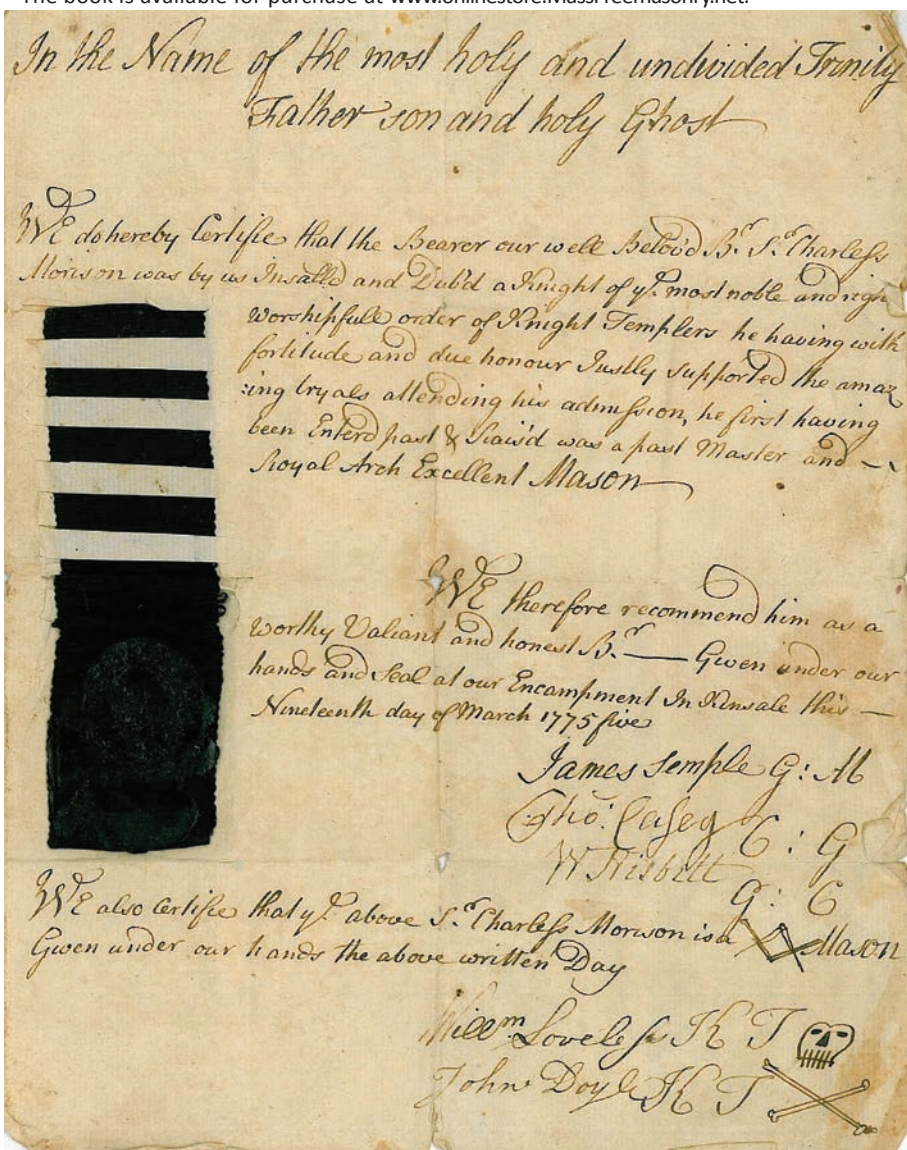 The book is available for purchase at www.onlinestore.MassFreemasonry.net.
In the Name of the most holy and undivided Trinity
Father son and holy Ghost
WE do hereby Certifie that the Bearer our well Belov'd Br. Sr. Charless
Morison was by us Insalld and Dub'd a Knight of ye. most noble and righ
worshipfull order of Knight Templers he having with
fortitude and due honour Justly Supported the amaz
:ing tryals attending his admission, he first having
been Enterd past & Rais'd was a past Master and —
Royal Arch Excellent Mason
WE therefore recommend him as a
Worthy Valiant and honest Br. — Given under our
hands and Seal at our Encampment In Kinsale this —
Nineteenth day of March 1775 five
James Semple G: M
Tho: Casey C: G
W Nisbett G: C
WE also Certifie that ye. above Sr. Charless Morison is a Mason
Given under our hands the above written Day
Willm. Loveless K T
John Doyle K T